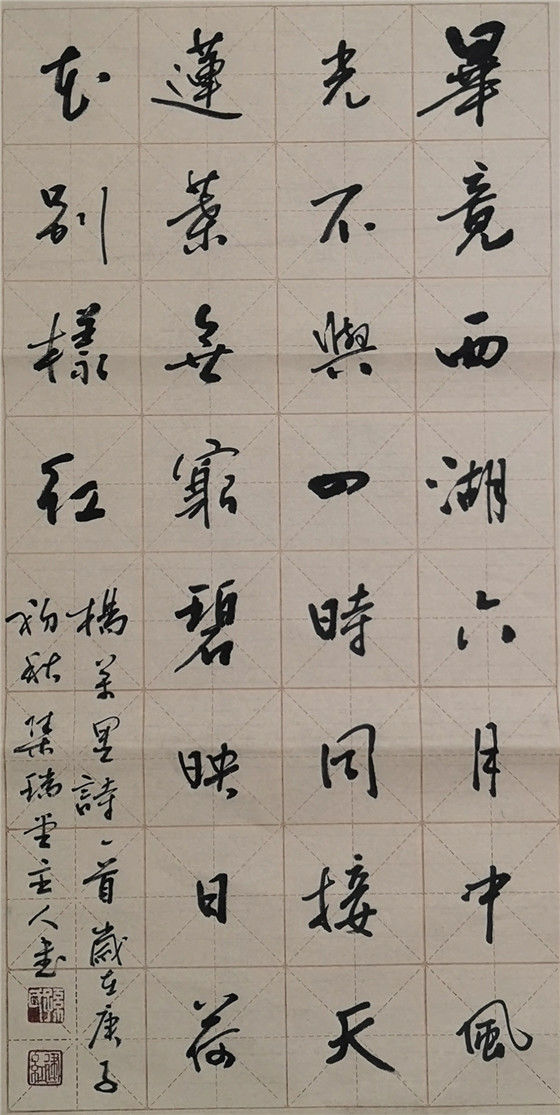 畢竟西湖六月中風
光不與四時同接天
蓮葉無窮碧映日荷
花別樣紅
楊萬里詩一首歲在庚子
初秋集瑞堂主人書